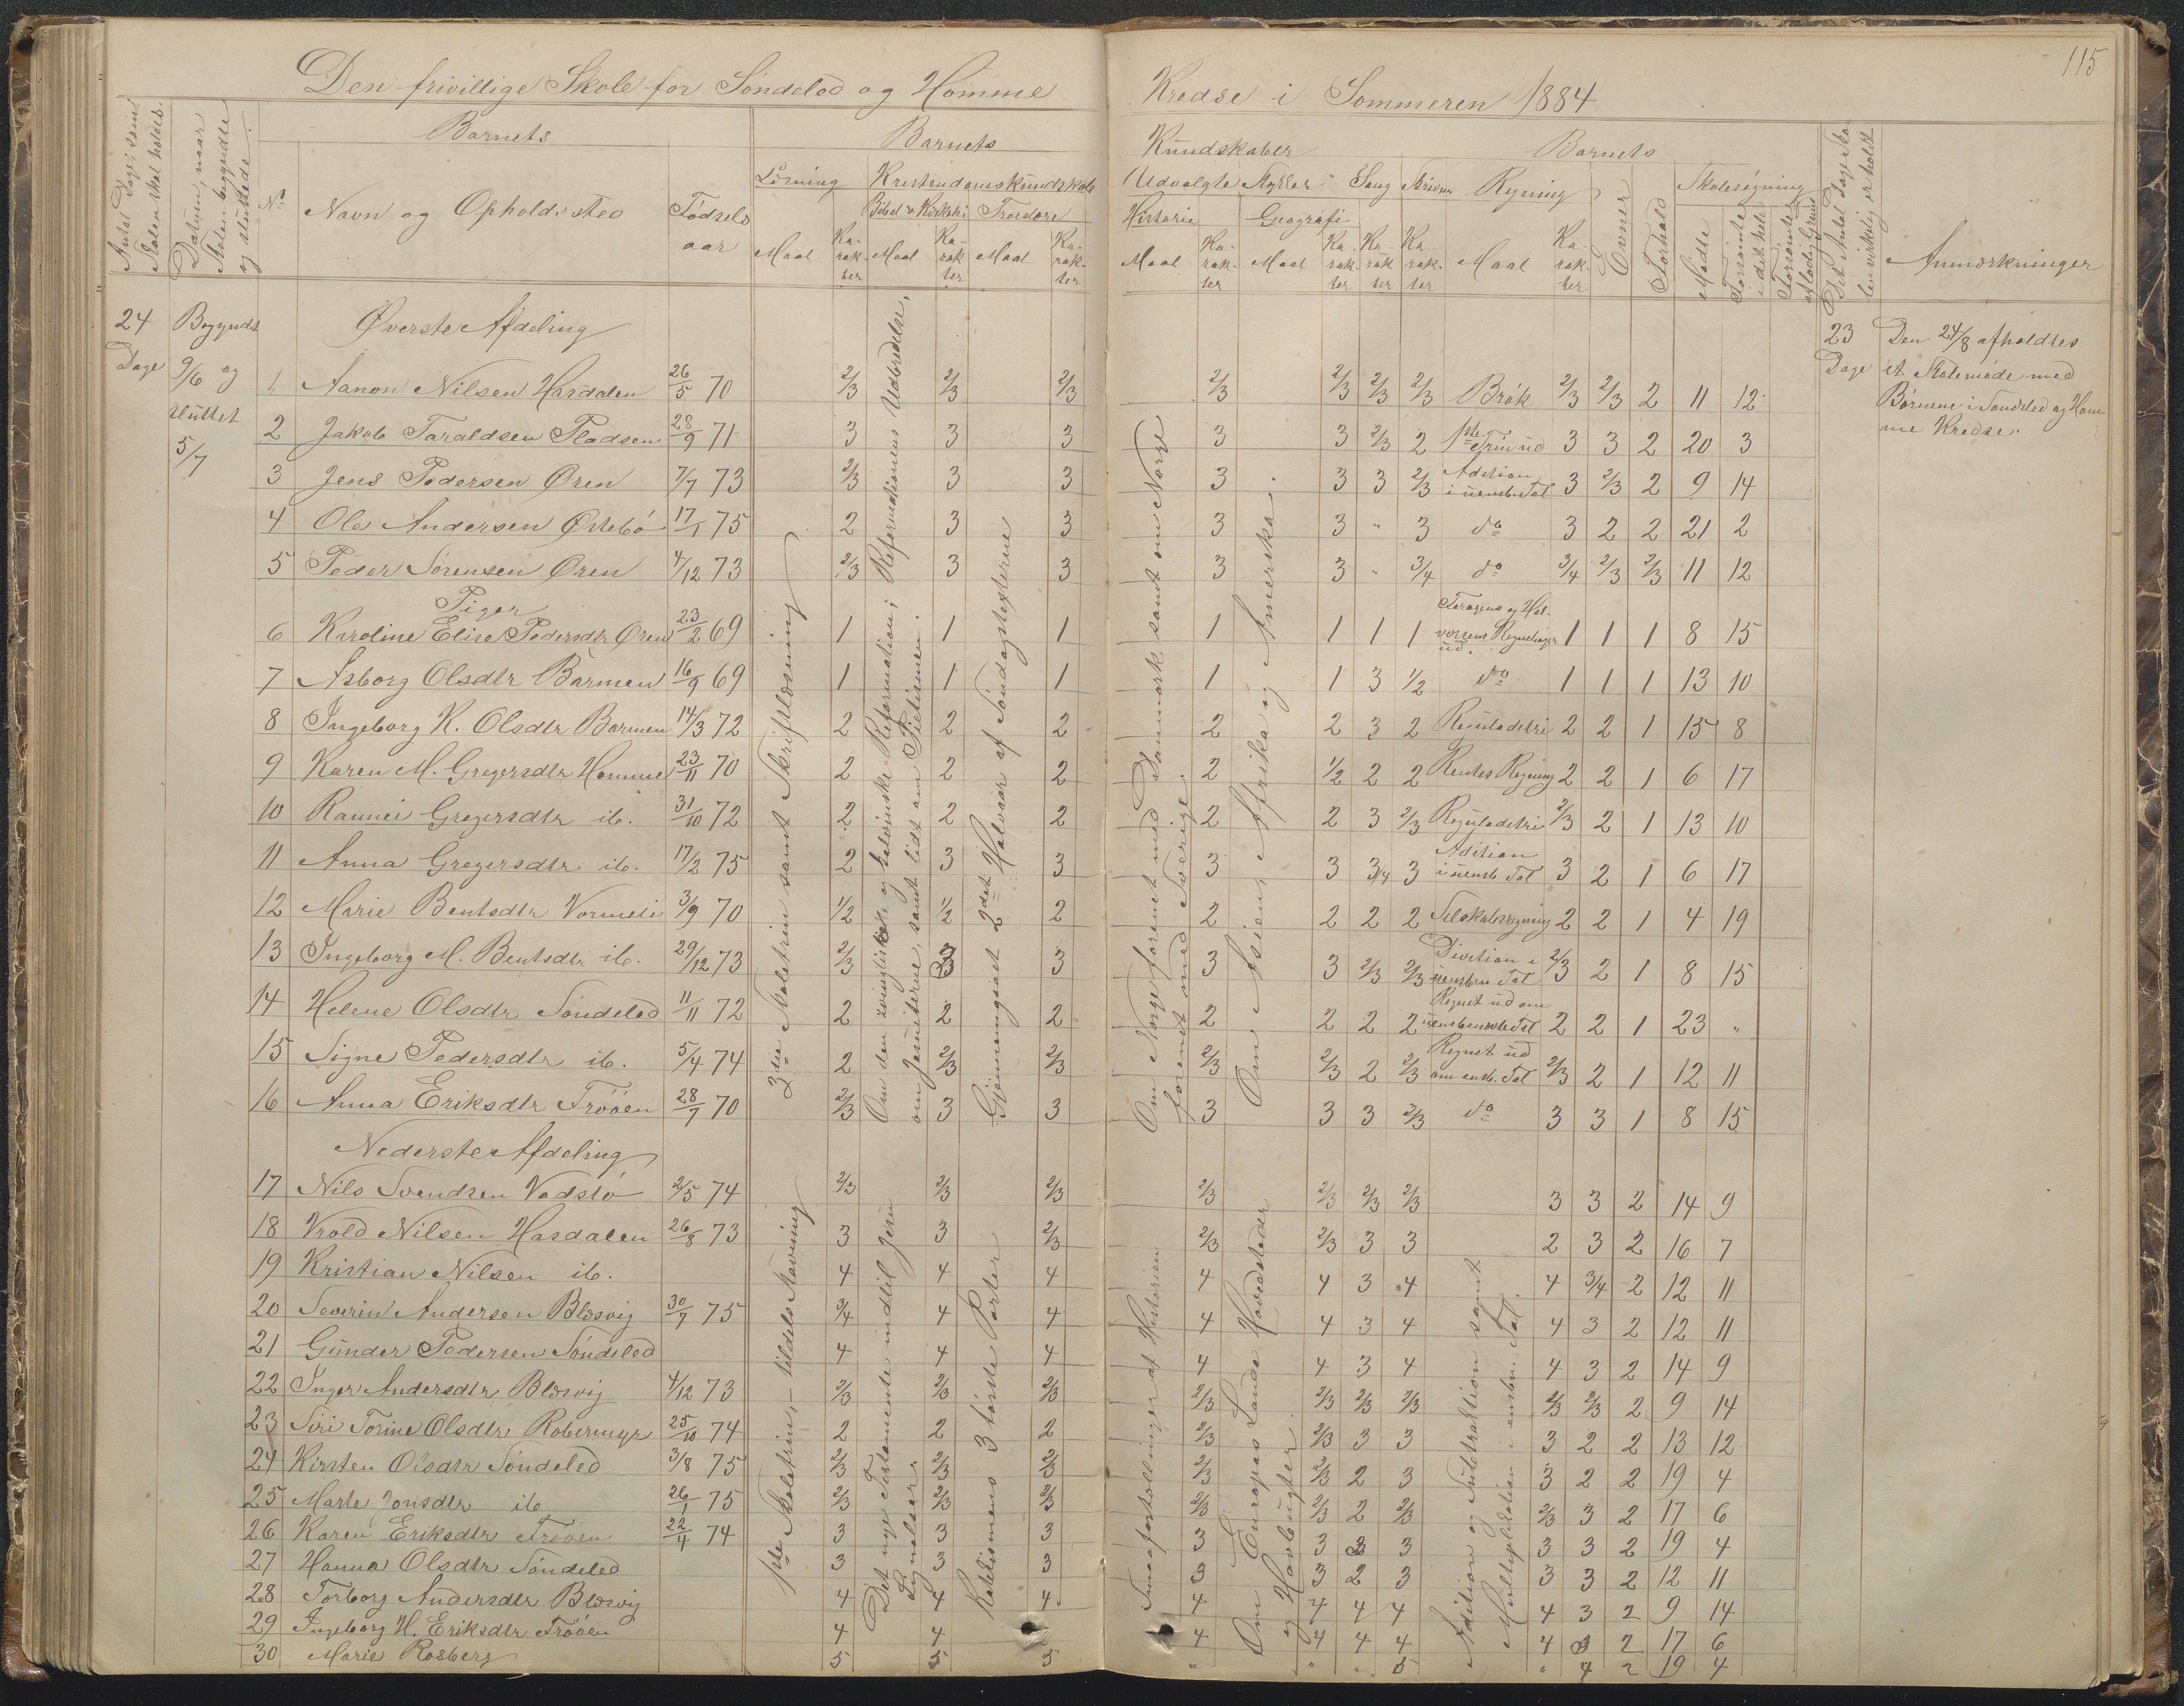 115
Den frivillige Skole for Söndeled og Homme Kredse i Sommeren 1884
Antal Dage, som Skolen skal holdes.
Datum, naar Skolen begyndte og sluttede.
Barnets
No
Navn og Opholdssted
Fødselsaar
Barnets Kundskaber
Læsning
Maal
Karakter
Kristendomskundskab
Bibel & Kirkehi
Maal
Karakter
Troeslære
Maal
Karakter
Udvalgte Stykker
Historie
Maal
Karakter
Geografi
Maal
Karakter
Sang
Karakter
Skrivn
Karakter
Barnets
Regning
Maal
Karakter
Evner
Forhold
Skolesøgning
Mødte
Forsømte i det hele
Forsømte af lovlig Grund
Det Antal Dage Skolen virkelig er holdt
Anmærkninger
24 Dage
Begyndt 9/6 og sluttet 5/7
23 Dage
Den 24/8 afholdtes
et Skolemøde med
Børnene i Söndeled og Hom-
me Kredse.
Øverste Afdeling
1 Aanon Nilsen Hasdalen 26/5 70 2/3 2/3 2/3 2/3 2/3 2/3 2/3 Brøk 2/3 2/3 2 11 12
2 Jakob Taraldsen Pladsen 28/9 71 3 3 3 3 3 2/3 2 1ste Trin ud 3 3 2 20 3
3 Jens Pedersen Øren 7/7 73 2/3 3 3 3 3 3 2/3 Adition i uensb. Tal 3 2/3 2 9 14
4 Ole Andersen Östebö 17/1 75 2 3 3 3 3 " 3 do 3 2 2 21 2
5 Peder Sörensen Øren 4/12 73 2/3 3 3 3 3 " 3/4 do 3/4 2/3 2/3 11 12
Piger
6 Karoline Elise Pedersdtr Øren 23/2 69 1 1 1 1 1 1 1 Regnebøger ud. 1 1 1 8 15
7 Asborg Olsdtr Barmen 16/9 69 1 1 1 1 1 3 1/2 do 1 1 1 13 10
8 Ingeborg K. Olsdtr Barmen 14/3 72 2 2 2 2 2 3 2 Reguladetri 2 2 1 15 8
9 Karen M. Gregersdtr Homme 23/11 70 2 2 2 2 1/2 2 2 Rentes Regning 2 2 1 6 17
10 Rannei Gregersdtr ib. 31/10 72 2 2 2 2 2 3 2/3 Reguladetri 2/3 2 1 13 10
11 Anna Gregersdtr ib. 17/2 75 2 3 3 3 3 3/4 3 Adition i uensb. Tal 3 2 1 6 17
12 Marie Bentsdtr Vormeli 3/9 70 1/2 1/2 2 2 2 2 2 Selskabsregning 2 2 1 4 19
13 Ingeborg M. Bentsdtr ib. 29/12 73 2/3 3 3 3 3 2/3 2/3 Divition i uensbn Tal 2/3 2 1 8 15
14 Helene Olsdtr Söndeled 11/11 72 2 2 2 2 2 2 2 Regnet ud om uensbenævnte Tal 2 2 1 23 "
15 Signe Pedersdtr ib. 5/4 74 2 2/3 2/3 2/3 2/3 2 2/3 Regnet ud om ensb. Tal 2/3 2 1 12 11
16 Anna Eriksdtr Fröóen 28/7 70 2/3 3 3 3 3 3 2/3 do 3 3 1 8 15
3die Skoletrin samt Skriftlæsning
Om den zwingliske og kalvinske Reformation; Reformationens Udbredelse,
om Jesuiterne, samt lidt om Pietismen.
Gjennemgaaet 2det Halvaar af Søndagstexterne
Om Norge forenet med Danmark samt om Norge
forenet med Sverige.
Om Asien, Afrika og Amerika.
Nederste Afdeling
17 Nils Svendsen Vadstö 2/5 74 2/3 2/3 2/3 2/3 2/3 2/3 2/3 3 3 2 14 9
18 Vrold Nilsen Hasdalen 26/8 73 3 3 2/3 2/3 2/3 3 3 2 3 2 16 7
19 Kristian Nilsen ib. 4 4 4 4 4 3 4 4 3/4 2 12 11
20 Severin Andersen Blæsvig 30/7 75 3/4 4 4 4 4 3 4 4 3 2 12 11
21 Gunder Pedersen Söndeled 4 4 4 4 4 3 4 4 3 2 14 9
22 Inger Andersdtr Blæsvig 4/12 73 2/3 2/3 2/3 2/3 2/3 2/3 2/3 2/3 2/3 2 9 14
23 Siri Torine Olsdtr Robermyr 25/10 74 2 2 2 2/3 2/3 3 3 3 2 2 13 12
24 Kirsten Olsdtr Söndeled 3/8 75 2/3 2/3 2/3 2/3 2/3 2 3 3 2 2 19 4
25 Marte Jonsdtr ib 26/1 75 2/3 2/3 2/3 2/3 2/3 2 2/3 2/3 3 2 17 6
26 Karen Eriksdtr Fröóen 22/4 74 3 3 3 3 3 3 3 3 2 19 4
27 Hanna Olsdtr Söndeled 3 3 3 3 3 2 3 3 3 2 12 11
28 Torborg Andersdtr Blæsvig 4 4 4 4 4 4 4 4 3 2 9 14
29 Ingeborg H. Eriksdtr Fröóen 4 4 4 4 4 4 4 2 17 6
30 Marie Rosberg 5 5 5 " " " 5 " 4 2 19 4
1ste Skoletrin, - tildels Stavning
Det nye Testamente indtil Jesu
Lignelser
Katekismens 3 første Parter
Smaafortællinger af Historien
Om Europas Lande, Hovedstæder
og Havbugter.
Adition og Subtraktion samt
Multiplikation i ensbn. Tal.